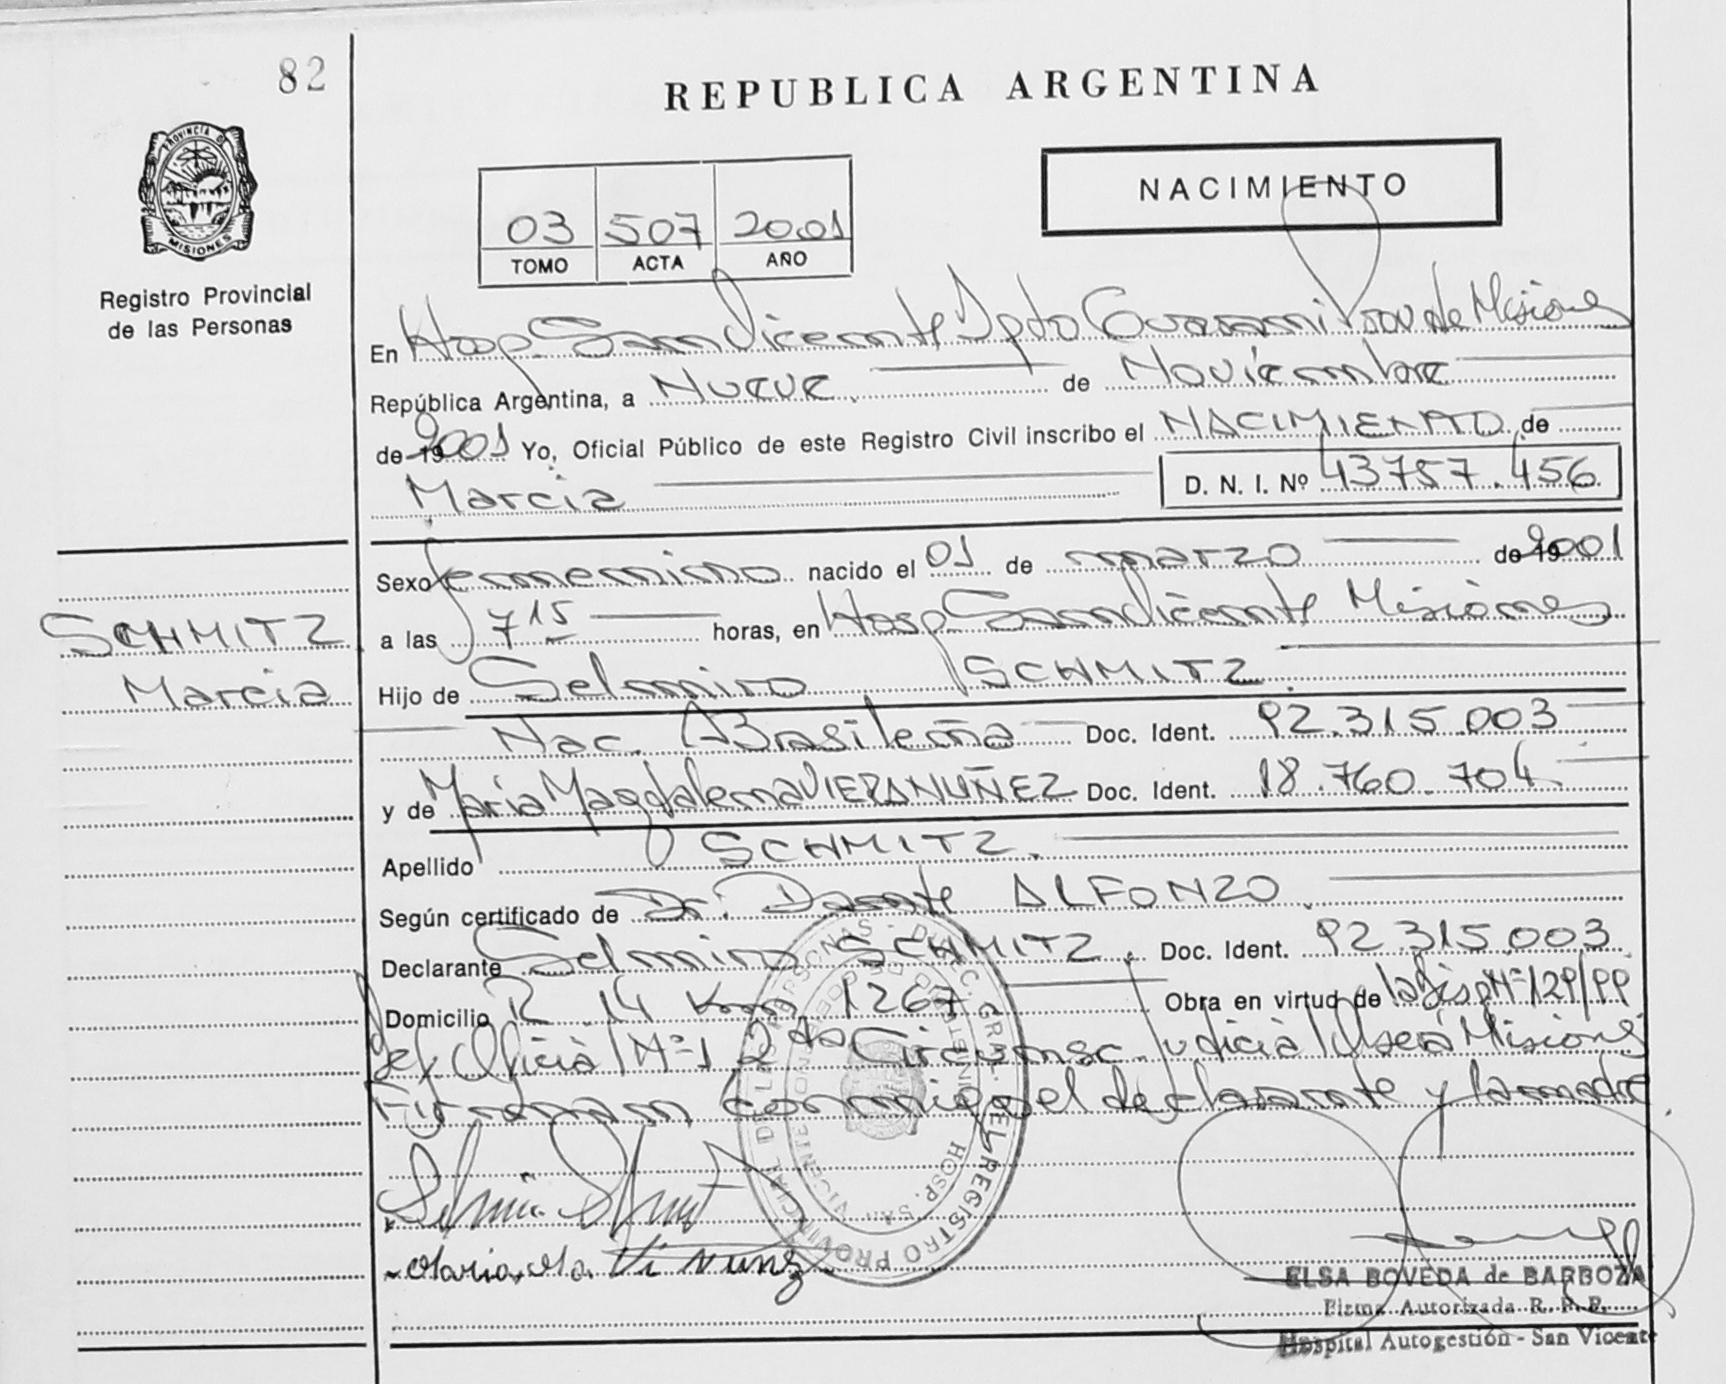 82
REPUBLICA ARGENTINA
PROVINCIA D
MISIONES
Registro Provincial
de las Personas
03 507 2001
TOMO ACTA AÑO
NACIMIENTO
En Hosp. San Vicente Dpto Guarani Prov de Misiones
República Argentina, a Nueve de Noviembre
de 19 2001 Yo, Oficial Público de este Registro Civil inscribo el NACIMIENTO de
Marcia D. N. I. Nº 43757.456
Sexo femenino nacido el 01 de marzo de 19 2001
SCHMITZ
Marcia
a las 7 15 horas, en Hosp San Vicente Misiones
Hijo de Selmiro SCHMITZ
Nac. Brasileña Doc. Ident. 92.315.003
y de Maria Magdalena VIERA NUÑEZ Doc. Ident. 18.760.704
Apellido SCHMITZ.
Según certificado de Dr. Dante ALFONZO
Declarante Selmiro SCHMITZ. Doc. Ident. 92.315.003
Domicilio R 14 Km 1267 Obra en virtud de la Disp Nº 129/99
Nº 1 2da Circunsc. Judicial Misiones
Firman conmigo el declarante y la madre
DIREC. GRAL. DEL REGISTRO PROVINCIAL DE LAS PERSONAS
HOSP. SAN VICENTE
ELSA BOVEDA de BARBOZA
Firma Autorizada R. P. P.
Hospital Autogestión - San Vicente